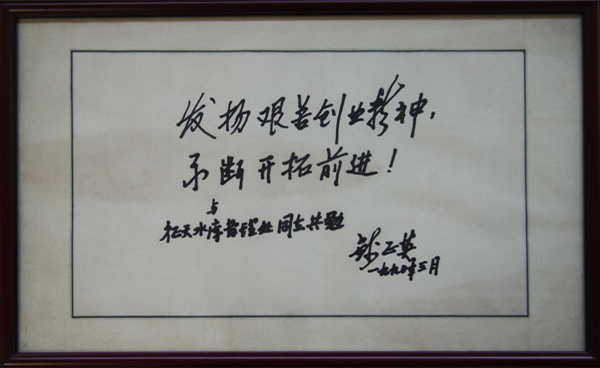 发扬艰苦创业精神,
不断开拓前进!
与
征天水库管理处同志共勉
钱正英
一九九〇年三月